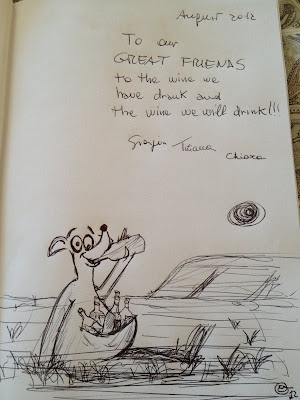 August 2012
To our
GREAT FRIENDS
to the wine we
have drank and
the wine we will drink!!!
Tiziana
Chiara